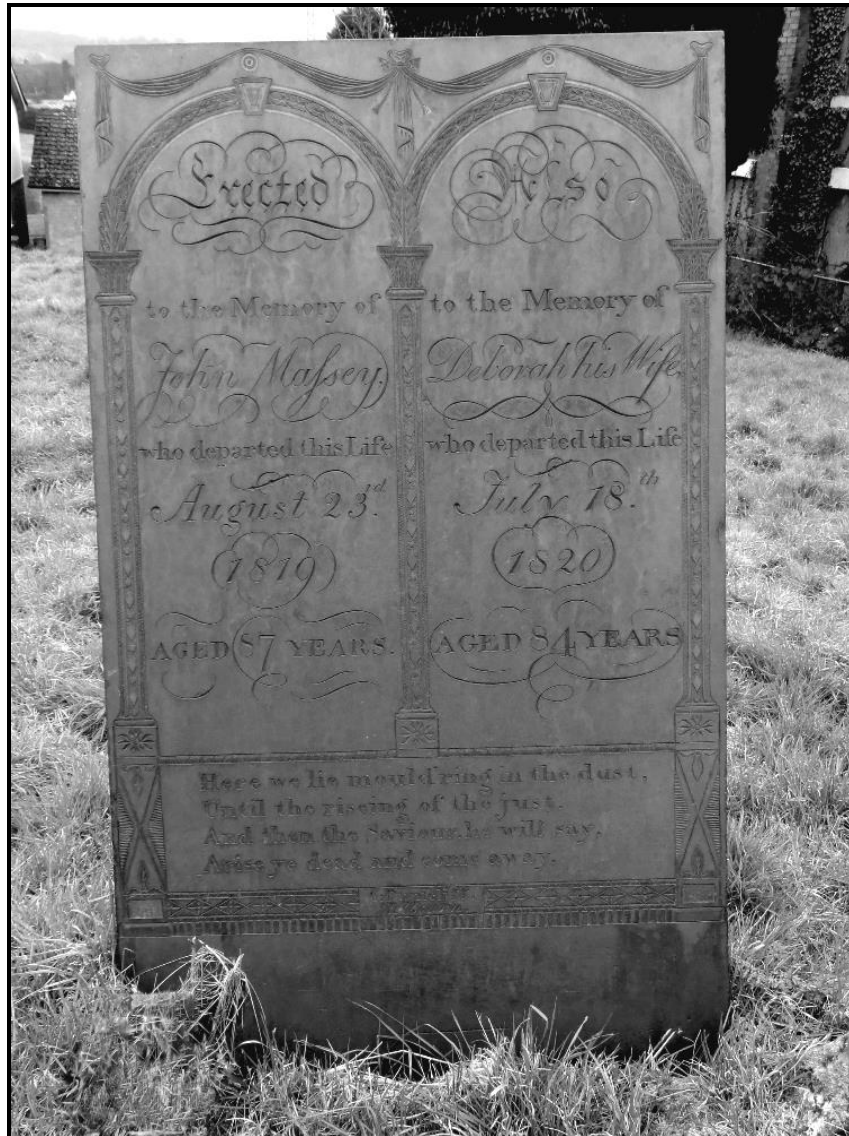 Erected
to the Memory of
John Maſsey,
who departed this Life
August 23.d
1819
AGED 87 YEARS.
Also
to the Memory of
Deborah his Wife,
who departed this Life
July 18.th
1820
AGED 84 YEARS
Here we lie mould'ring in the dust,
Until the riseing of the just.
And then the Saviour he will say,
Arise ye dead and come away.